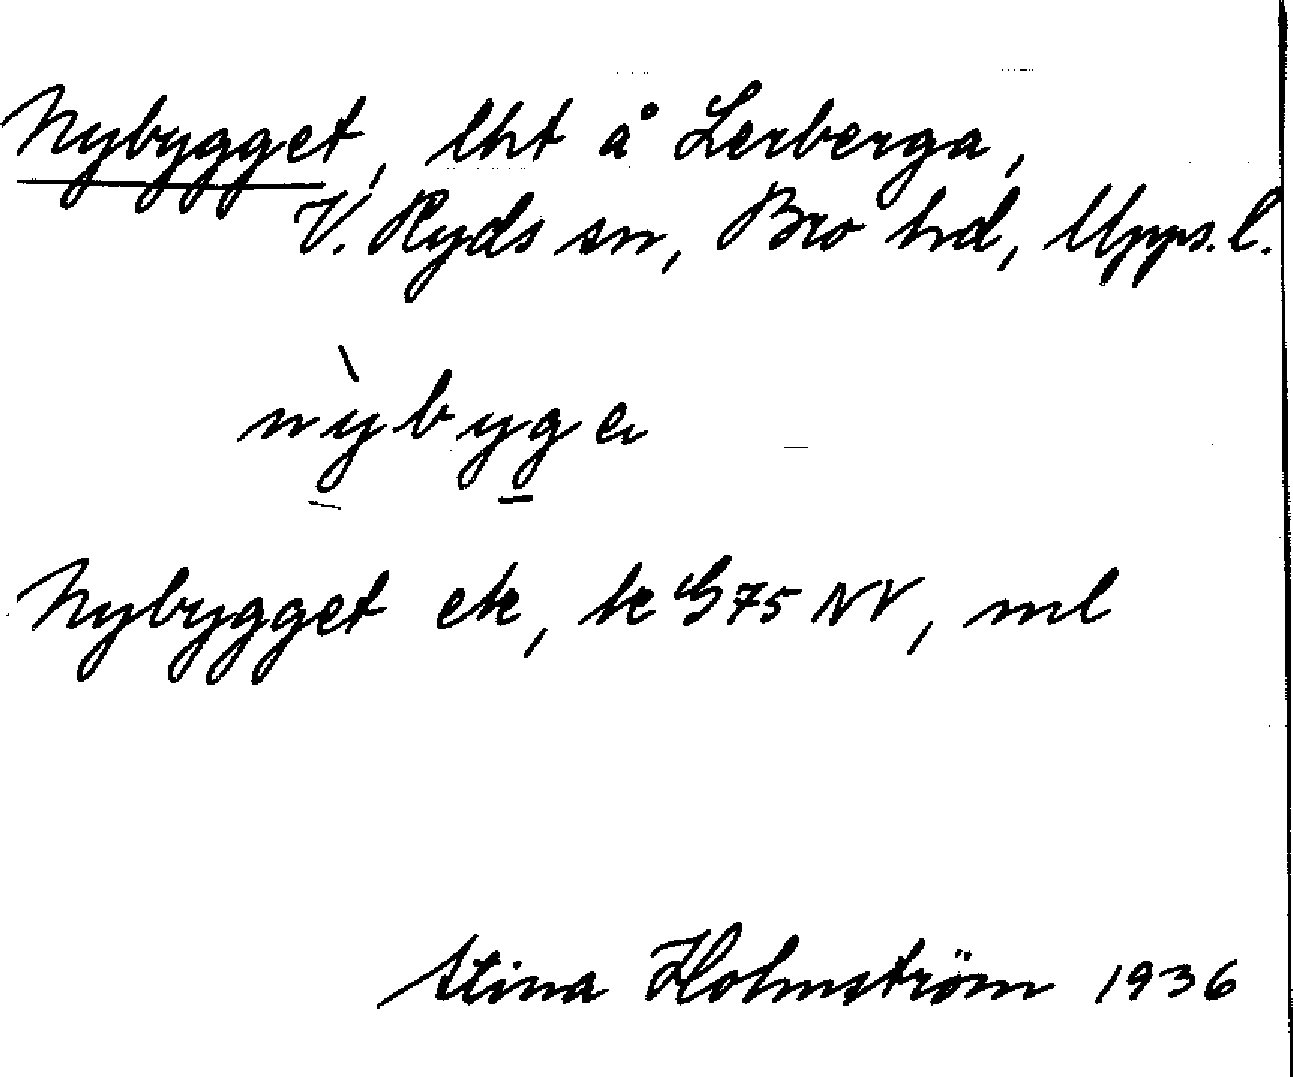 Nybygget, lht å Lerberga,
V. Ryds sn, Bro hd, Upps. l.
nỳbyge
Nybygget ek, k G75 NV, ml
Stina Holmström 1936